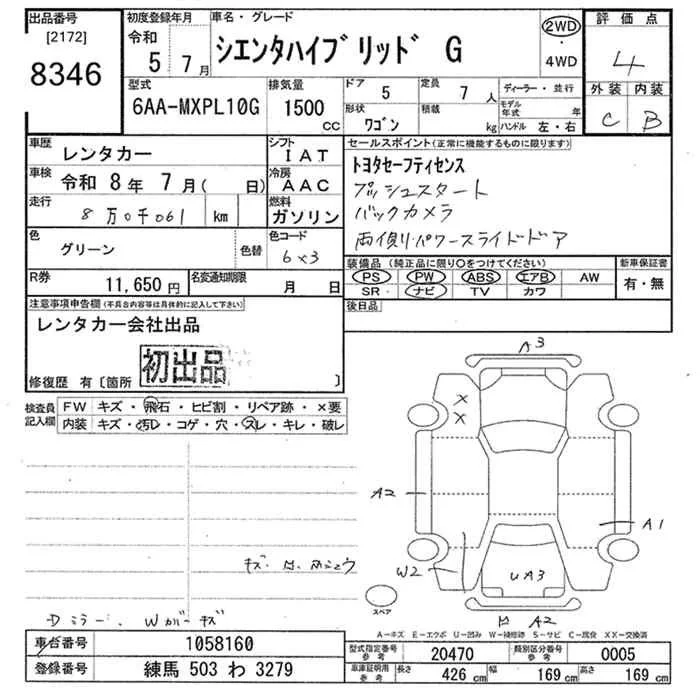 出品番号 初度登録年月 車名・グレード 評価点
[2172] 令和 5 7月 シエンタハイブリッド G 2WD・4WD 4
8346
型式 排気量 ドア 定員 ディーラー・並行 外装 内装
6AA-MXPL10G 1500 CC 5 7 人 モデル年式 年 C B
形状 ワゴン 積載 kg ハンドル 左・右
車歴 レンタカー シフト IAT セールスポイント(正常に機能するものに限ります)
車検 令和 8年 7月( 日) 冷房 AAC トヨタセーフティセンス
走行 8万0千061 km 燃料 ガソリン プッシュスタート
バックカメラ
色 グリーン 色替 色コード 6×3 両側リパワースライドドア
装備品(純正品に限り○をつけてください) 新車保証書
R券 11,650円 名変通知期限 月 日 PS PW ABS エアB AW 有・無
SR ナビ TV カワ
注意事項申告欄(不具合内容等は具体的に記入して下さい) 後日品
レンタカー会社出品
初出品
修復歴 有〔箇所 〕
検査員記入欄 FW キズ・飛石・ヒビ割・リペア跡・×要
内装 キズ・汚レ・コゲ・穴・スレ・キレ・破レ
A3
×
×
A2
A1
W2
UA3
スペア
A2
Dミラー、Wカバーキズ
A-キズ E-エクボ U-凹み W-補修跡 S-サビ C-腐食 XX-交換済
車台番号 1058160 型式指定番号 参考 20470 類別区分番号 参考 0005
登録番号 練馬 503 わ 3279 車庫証明用 参考 長さ 426 cm 幅 169 cm 高さ 169 cm